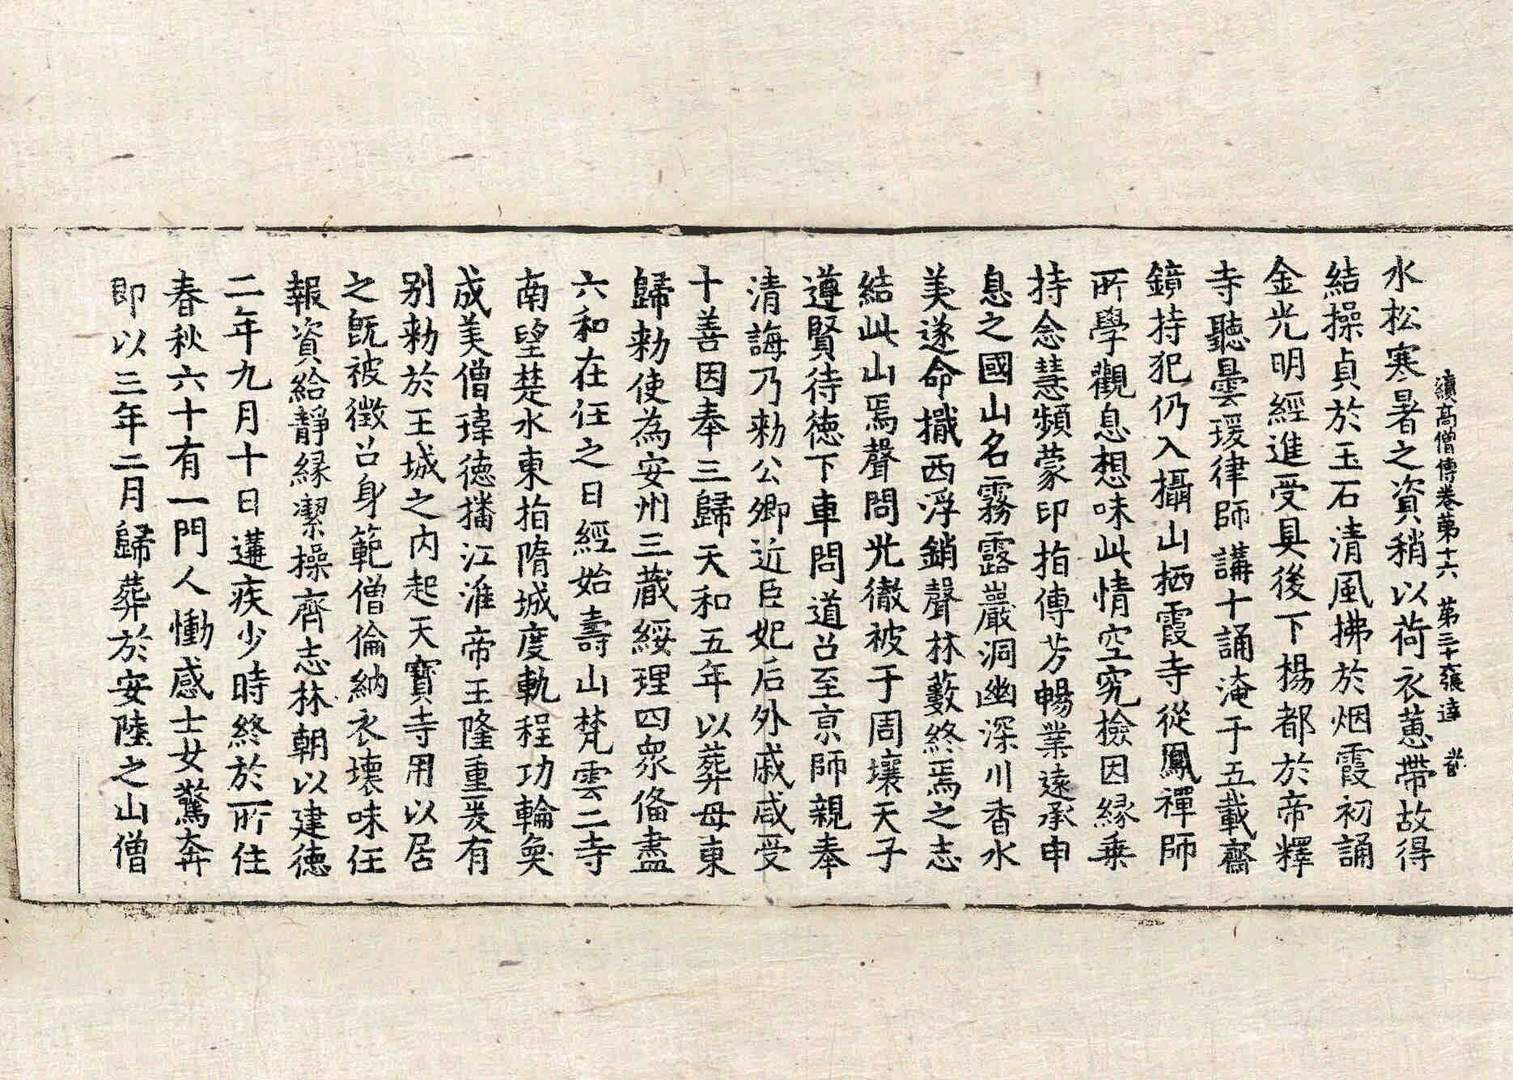 續高僧傳卷第十六 第三十張 達
水松寒暑之資稍以荷衣蕙帶故得
結操貞於玉石清風拂於烟霞初誦
金光明經進受具後下楊都於帝釋
寺聽曇瑗律師講十誦淹于五載齋
鏡持犯仍入攝山栖霞寺從鳳禪師
所學觀息想味此情空究檢因緣乗
持念慧頻蒙印指傳芳暢業遠承申
息之國山名霧露巖洞幽深川香水
美遂命擑西浮銷聲林藪終焉之志
結此山焉聲問光徹被于周壤天子
遵賢待徳下車問道召至京師親奉
清誨乃勑公卿近臣妃后外戚咸受
十善因奉三歸天和五年以葬母東
歸勑使為安州三藏綏理四衆俻盡
六和在任之日經始壽山梵雲二寺
南望楚水東指隋城度軌程功輪奐
成美僧瑋徳播江淮帝王隆重爰有
别勑於王城之内起天寶寺用以居
之旣被徴召身範僧倫納衣壊味任
報資給靜緣潔操齊志林朝以建徳
二年九月十日遘疾少時終於所住
春秋六十有一門人慟感士女驚奔
即以三年二月歸葬於安陸之山僧